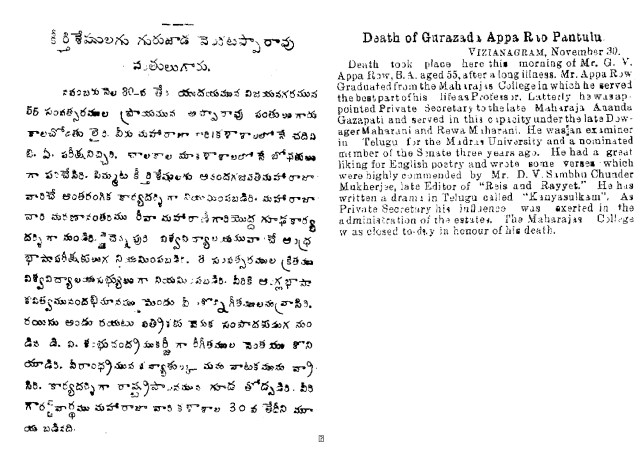 కీర్తిశేషులగు గురుజాడ వెంకటప్పారావు
పంతులుగారు.
నవంబరు నెల 30-వ తేది యుదయమున విజయనగరమున
55 సంవత్సరముల ప్రాయమున అప్పారావు పంతులుగారు
కాలధర్మము వీరు మహారాజా వారి కళాశాలలోనే చదివి
బి. ఏ. పరీక్ష నిచ్చిరి. కళాశాలలోనే బోధకులు
గా పనిచేసిరి. పిమ్మట కీర్తిశేషులగు ఆనందగజపతి మహారాజా
వారిచే ఆంతరంగిక కార్యదర్శిగా నియమింపబడిరి. మహారాజా
వారి మరణానంతరము రీవా మహారాణీగారియొద్ద గూఢ కార్య
దర్శిగా నుండిరి. చెన్నపురి విశ్వవిద్యాలయమువారిచే ఆంధ్ర
భాషా పరీక్షకులుగ నియమింపబడిరి. 3 సంవత్సరముల క్రితము
విశ్వవిద్యాలయ సభ్యులుగా నియమింపబడిరి. వీరికి ఆంగ్లభాషా
కవిత్వమునందభిమానము మెండు వీరు కొన్ని గీతములను వ్రాసిరి.
రయిసు అండు రయటు పత్రికకు సంపాదకుడుగ నుం
డిన డి. వి. శంభుచంద్రముకర్జీ గారీగీతముల నెంతయు కొని
యాడిరి. వీరాంధ్రమున కన్యాశుల్క మను నాటకమును వ్రా
సిరి. కార్యదర్శిగా రాష్ట్రపాలనమున గూడ తోడ్పడిరి. వీరి
గౌరవార్థము మహారాజా వారి కళాశాల 30 వ తేదీని మూ
య బడినది.
Death of Gurazada Appa Rao Pantulu.
VIZIANAGRAM, November 30.
Death took place here this morning of Mr. G. V.
Appa Row, B.A. aged 55, after a long illness. Mr. Appa Row
Graduated from the Maharajas College in which he served
the best part of his life as Professor. Latterly he was ap-
pointed Private Secretary to the late Maharaja Ananda
Gazapati and served in this capacity under the late Dow-
ager Maharani and Rewa Maharani. He was an examiner
in Telugu for the Madras University and a nominated
member of the Senate three years ago. He had a great
liking for English poetry and wrote some verses which
were highly commended by Mr. D. V. Sambhu Chunder
Mukherjee, late Editor of "Reis and Rayyet." He has
written a drama in Telugu called "Kanyasulkam". As
Private Secretary his influence was exerted in the
administration of the estates. The Maharajas College
was closed to-day in honour of his death.